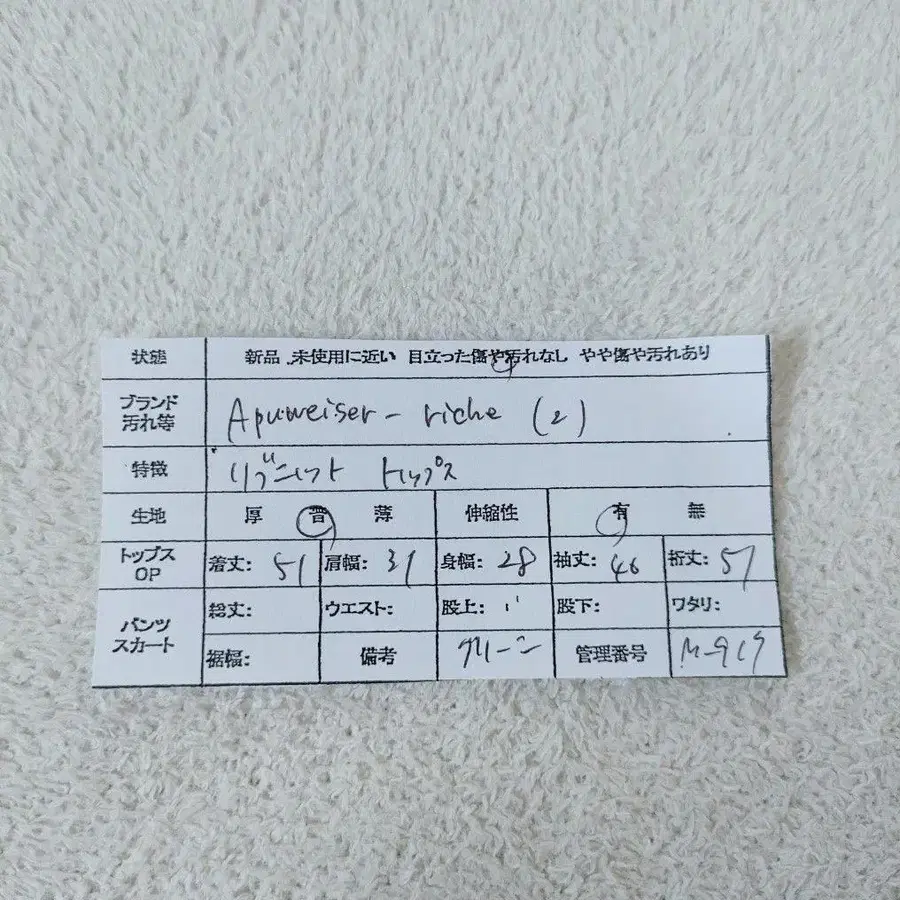 状態 新品 未使用に近い 目立った傷や汚れなし やや傷や汚れあり
ブランド
汚れ等 Apuweiser-riche (2)
特徴 リブニット トップス
生地 厚 普 薄 伸縮性 有 無
トップス
OP 着丈: 51 肩幅: 31 身幅: 28 袖丈: 46 裄丈: 57
パンツ
スカート 総丈: ウエスト: 股上: 股下: ワタリ:
裾幅: 備考 管理番号